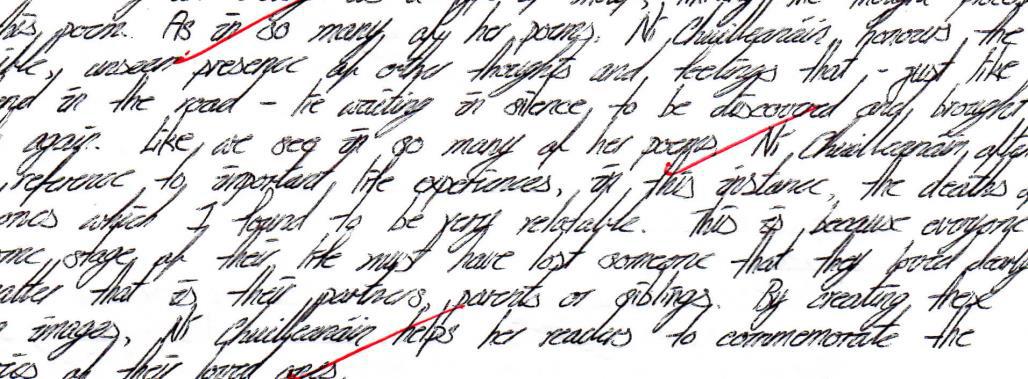 this poem. As in so many of her poems, Ní Chuilleanáin honours the
unseen presence of other thoughts and feelings that, - just like
in the road - lie waiting in silence to be discovered and brought
again. Like we see in so many of her poems Ní Chuilleanáin often
reference to important life experiences, in this instance, the deaths of
which I found to be very relatable. This is because everyone
stage of their life must have lost someone that they loved dearly
that is their partners, parents or siblings. By creating these
images, Ní Chuilleanáin helps her readers to commemorate the
of their loved ones.